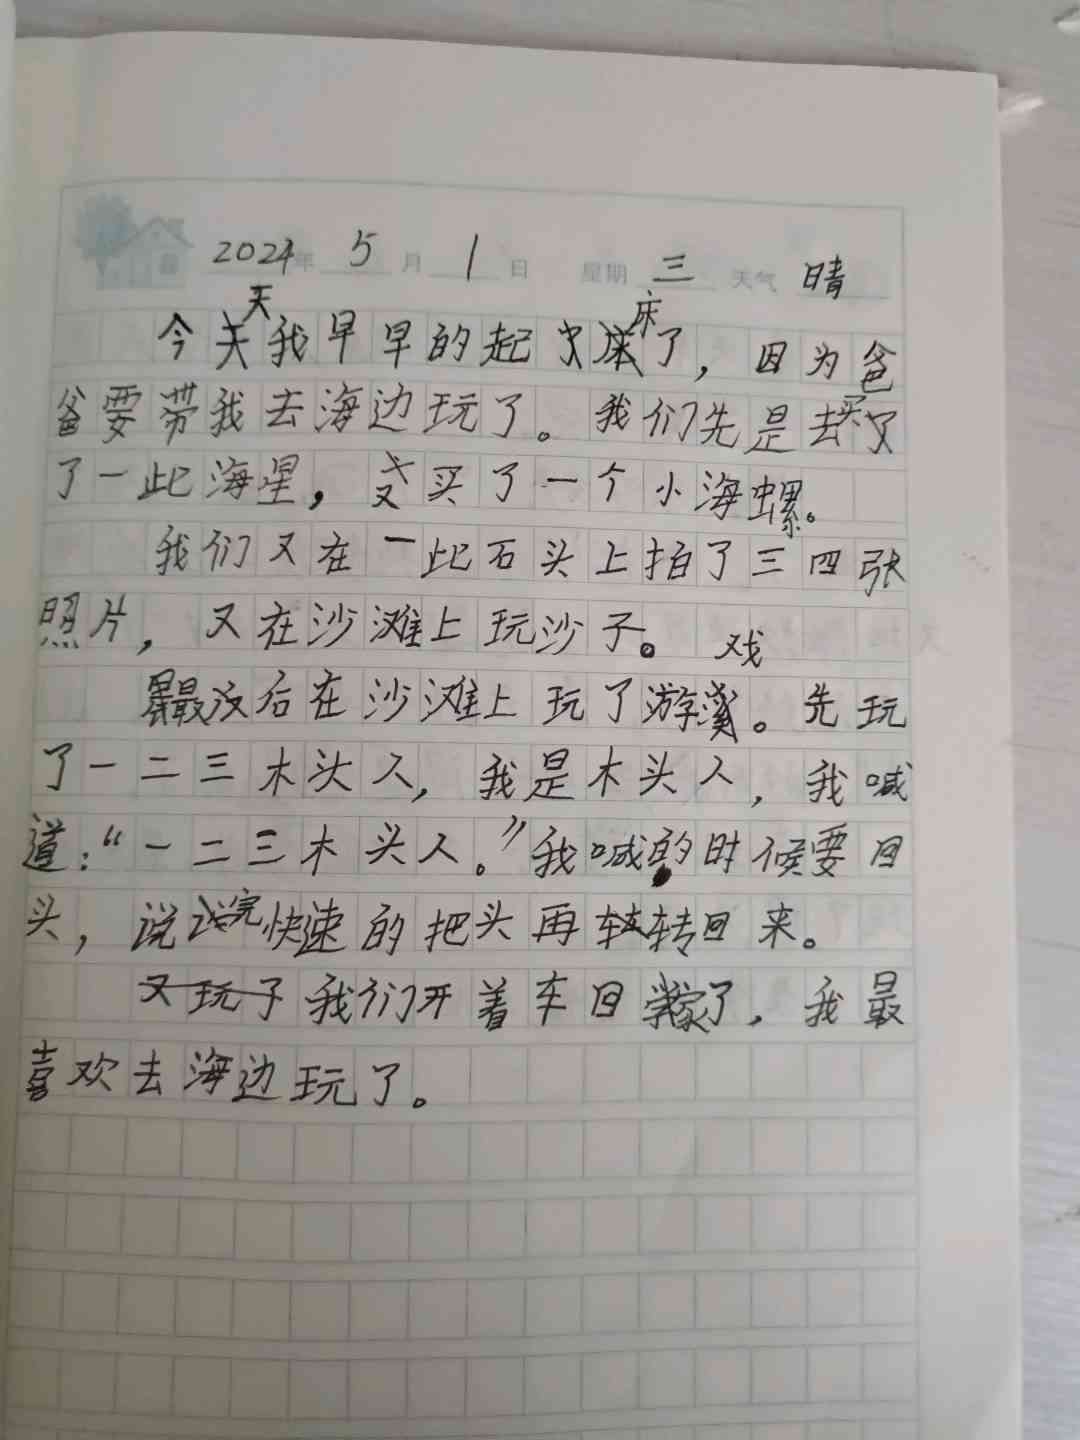 2024年 5月 1日 星期 三 天气 晴
今天我早早的起床了，因为爸
爸要带我去海边玩了。我们先是去买
了一此海星，又买了一个小海螺。
我们又在一此石头上拍了三四张
照片，又在沙滩上玩沙子。
最后在沙滩上玩了游戏。先玩
了一二三木头人，我是木头人，我喊
道：“一二三木头人。”我喊的时候要回
头，说完快速的把头再转回来。
我们开着车回家了，我最
喜欢去海边玩了。